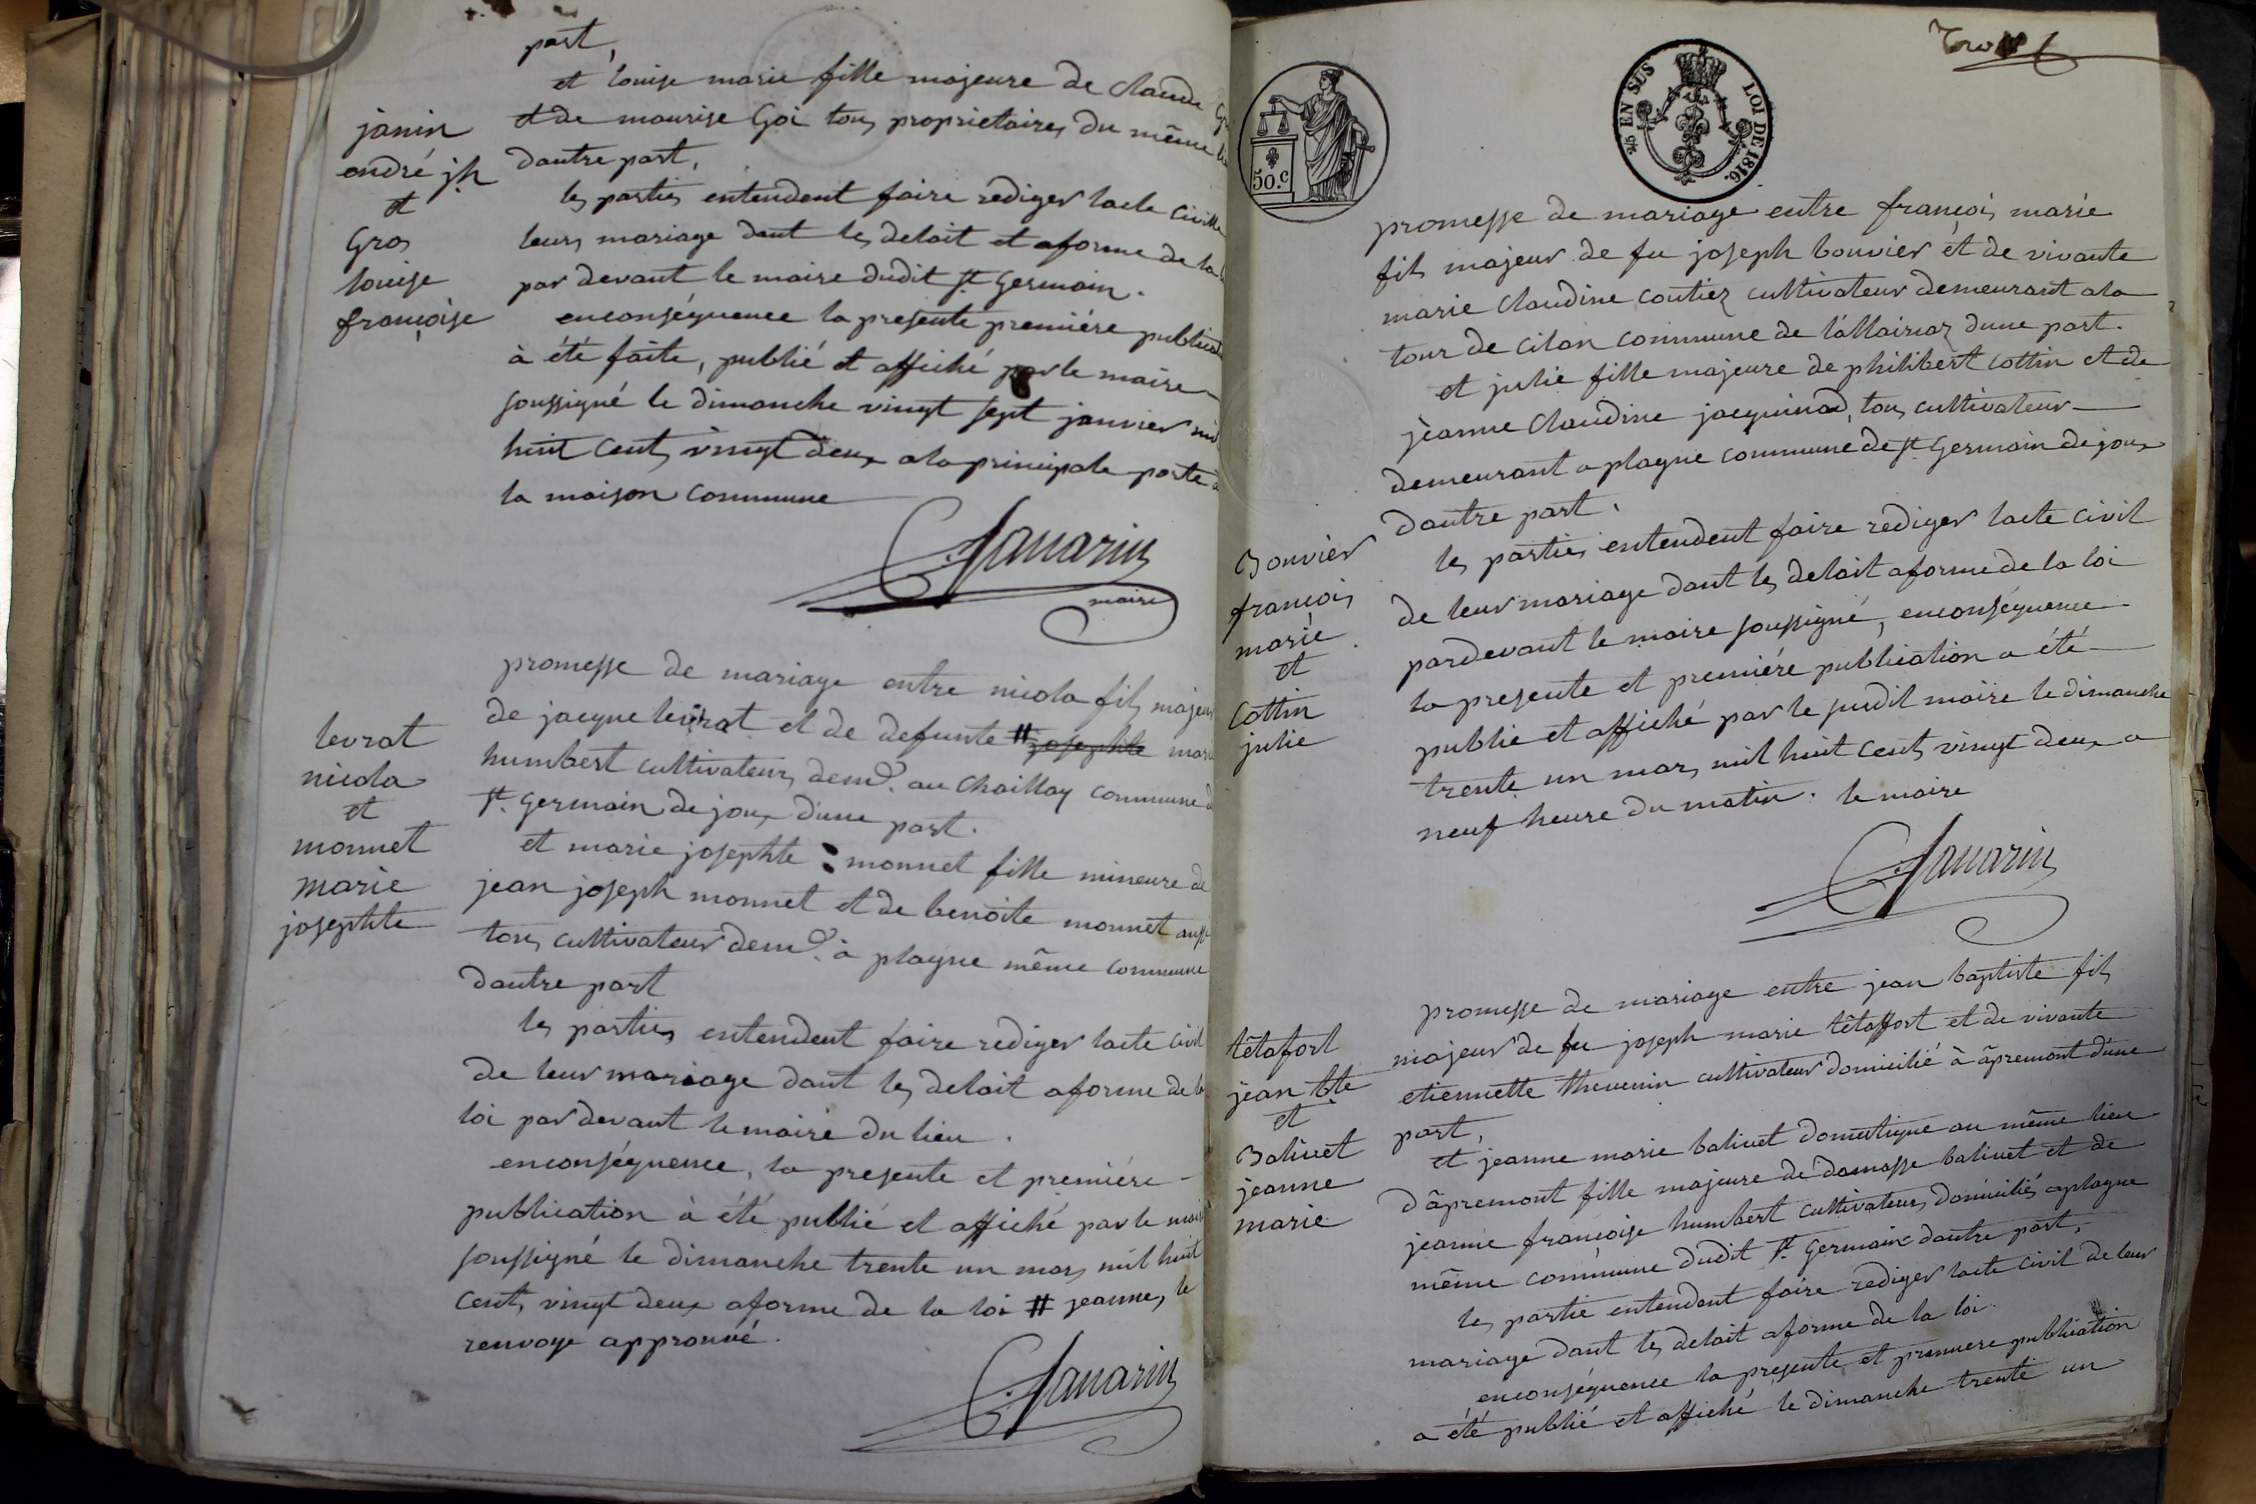 part,
et louise marie fille majeure de Claude
et de maurise Goi tous proprietaires du même
dautre part,
les parties entendent faire rediger lacte Civille
leurs mariage dant les delait et aforme de la
par devant le maire dudit St. Germain.
enconséquence la presente premiére publicat
à été faite, publié et affiché par le maire
soussigné le dimanche vingt sept janvier mil
huit Cent vingt deux a la principale porte
la maison commune
janin
andré jh
et
Gros
louise
françoise
maire
promesse de mariage entre nicola fils majeur
de jacque levrat et de defunte # josephte marie
humbert cultivateurs, demt. au Chaillay commune d
St. Germain de joux d'une part.
et marie josephte monnet fille mineure de
jean joseph monnet et de benoite monnet aussi
tous cultivateur demt. à plagne même commune
dautre part
les parties entendent faire rediger lacte Civil
de leur mariage dant les delait aforme de la
loi par devant le maire du lieu.
enconséquence, la presente et premiére
publication à été publié et affiché par le mair
soussigné le dimanche trente un mars mil huit
Cent vingt deux aforme de la loi # jeanne, le
renvoye approuvé.
levrat
nicola
et
monnet
marie
josephte
50.c
5/6 EN SUS
LOI DE 1816.
promesse de mariage entre françois marie
fils majeur de fu joseph bouvier et de vivante
marie Claudine coutier cultivateur demeurant a la
tour de cilan commune de lállairiaz dune part.
et julie fille majeure de philibert Cottin et de
jèanne Claudine jacquinod, tous cultivateur
demeurant a plagne commune de St. Germain de joux
dautre part.
les parties entendent faire rediger lacte civil
de leur mariage dant les delait aforme de la loi
pardevant le maire soussigné, enconséquence
la presente et premiére publication a été
publie et affiché par le susdit maire le dimanche
trente un mars mil huit Cent vingt deux a
neuf heure du matin. le maire
Bouvier
françois
marie
et
Cottin
julie
promesse de mariage entre jean baptiste fils
majeur de fu joseph marie têtaffort et de vivante
etiennette thevenin cultivateur domicilié à âpremont dune
part,
et jeanne marie balivet domestique au même lieu
d'âpremont fille majeure de damasse balivet et de
jeanne françoise humbert cultivateurs domiciliés aplagne
même commune dudit St. Germain dautre part,
les partie entendent faire rediger lacte Civil de leur
mariage dant les delait aforme de la loi.
enconséquence la presente et premiere publication
a été publié et affiché le dimanche trente un
têtafort
jean bte
et
Balivet
jeanne
marie